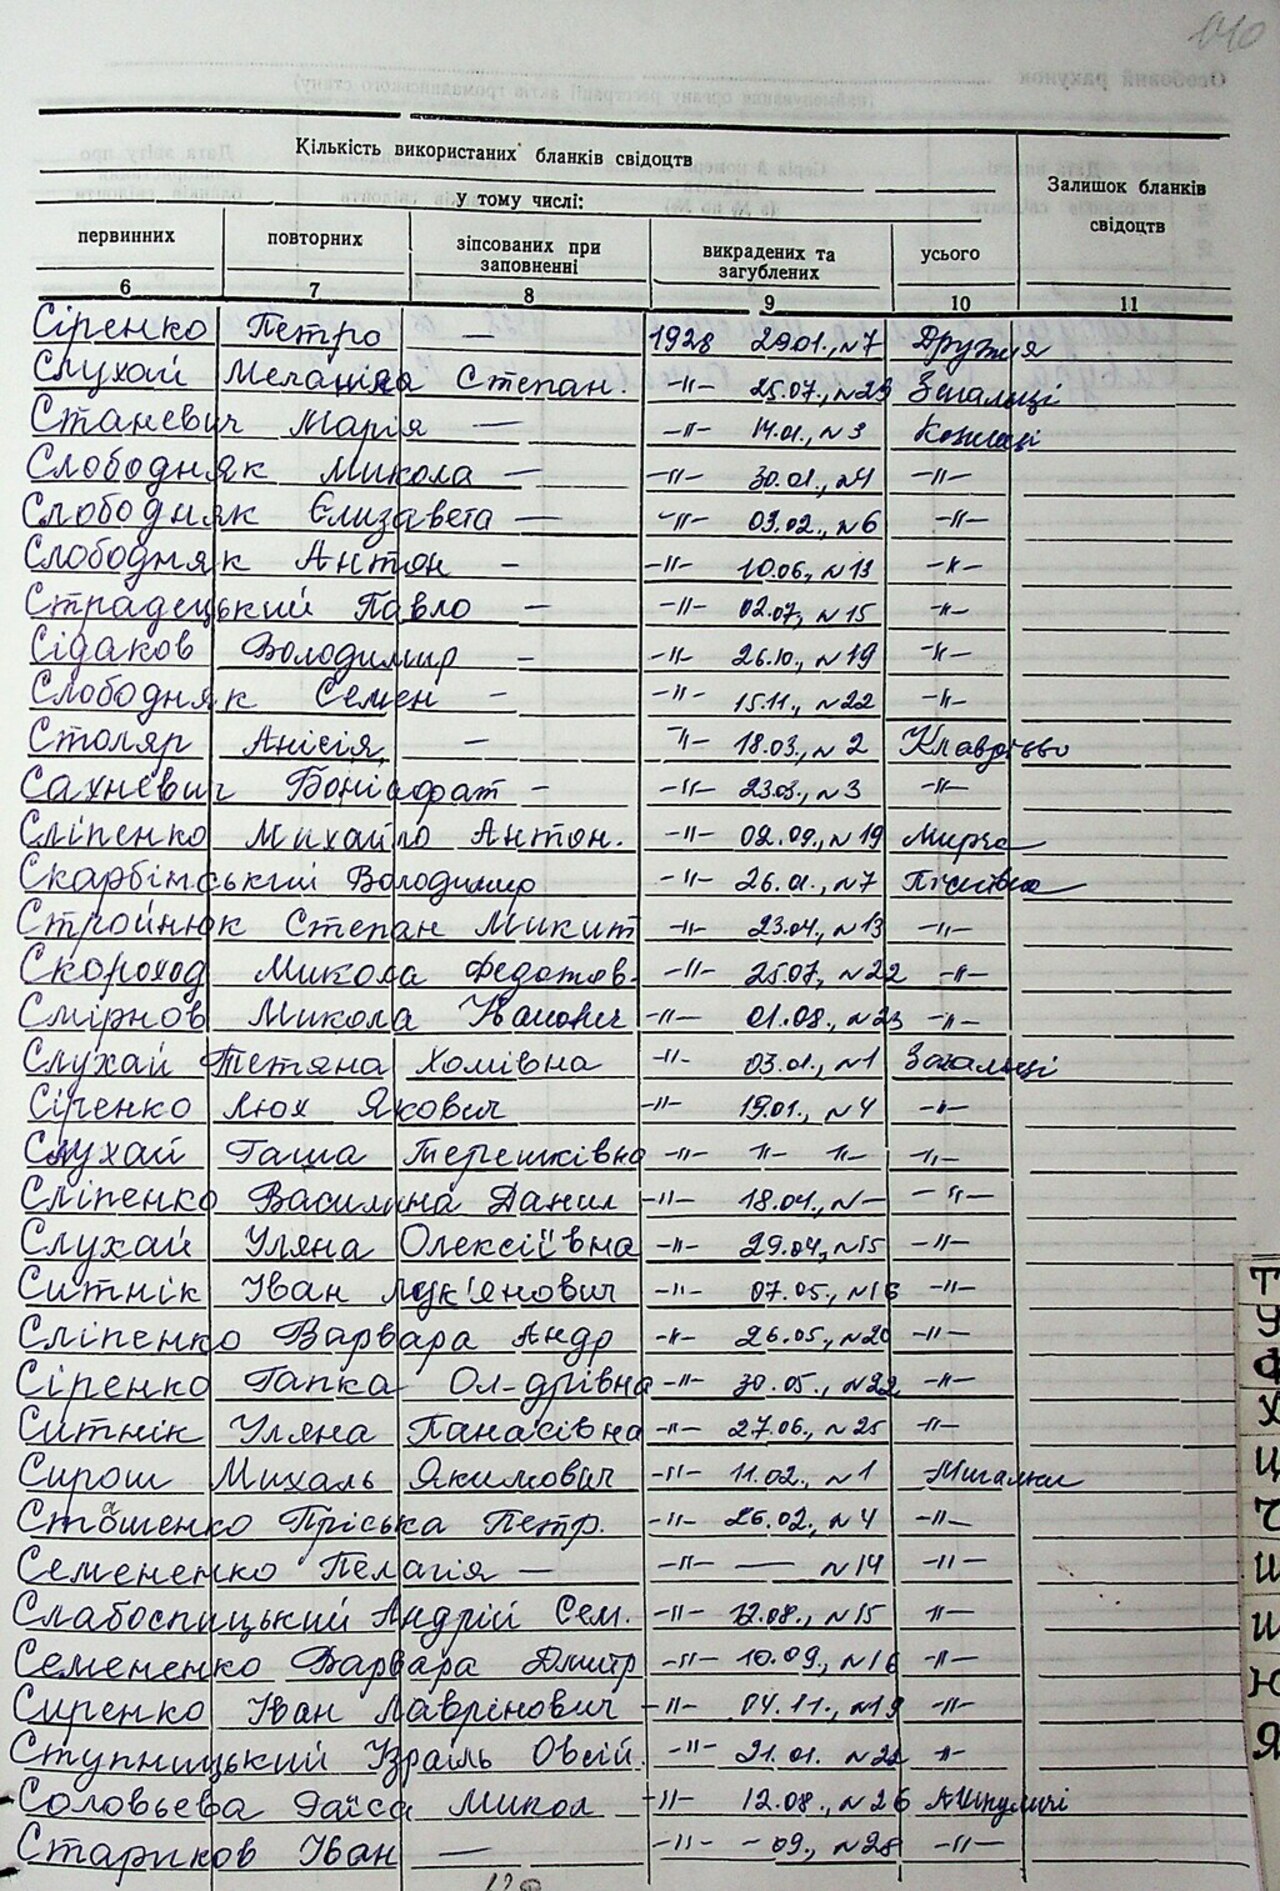 Кількість використаних бланків свідоцтв
у тому числі:
Залишок бланків свідоцтв
первинних повторних зіпсованих при заповненні викрадених та загублених усього
6 7 8 9 10 11
Сіренко Петро — 1928 29.01., №7 Дружня
Слухай Меланіка Степан. -"- 25.07., №23 Загальці
Станевич Марія — -"- 14.01., №3
Слободняк Микола — -"- 30.01., №4 -"-
Слободняк Єлизавета — -"- 03.02., №6 -"-
Слободняк Антон - -"- 10.06, №13 -"-
Страдецький Павло - -"- 02.07, №15 -"-
Сідаков Володимир - -"- 26.10., №19 -"-
Слободняк Семен - -"- 15.11., №22 -"-
Столяр Анісія, — -"- 18.03., №2 Клавдієво
Сахневич Боніафат - -"- 23.03., №3 -"-
Сліпенко Михайло Антон. -"- 02.09., №19 Мирча
Скарбінський Володимир -"- 26.01., №7 Пісківка
Стройнюк Степан Микит -"- 23.04., №13 -"-
Скороход Микола Федотов- -"- 25.07, №22 -"-
Смірнов Микола Іванович -"- 01.08., №23 -"-
Слухай Тетяна Хомівна -"- 03.01., №1 Загальці
Сіренко Люх Якович -"- 19.01., №4 -"-
Слухай Гаша Терешківна -"- -"- -"- -"-
Сліпенко Василина Данил -"- 18.04., №— -"-
Слухай Уляна Олексіївна -"- 29.04, №15 -"-
Ситнік Іван Лук'янович -"- 07.05., №16 -"-
Сліпенко Варвара Андр -"- 26.05., №20 -"-
Сіренко Гапка Ол-дрівна -"- 30.05., №22 -"-
Ситнік Уляна Панасівна -"- 27.06., №25 -"-
Сирош Михаль Якимович -"- 11.02., №1 Мигалки
Сташенко Пріська Петр. -"- 26.02., №4 -"-
Семененко Пелагія — -"- — №14 -"-
Слабоспицький Андрій Сем. -"- 12.08., №15 -"-
Семененко Варвара Дмитр -"- 10.09., №16 -"-
Сиренко Іван Лаврінович -"- 04.11., №19 -"-
Ступницький Ізраїль Овсій. -"- 21.01. №22 -"-
Соловьева Раїса Микол -"- 12.08., №26
Стариков Іван — -"- - 09., №28 -"-
Т
У
Ф
Х
Ц
Ч
Ш
Щ
Ю
Я